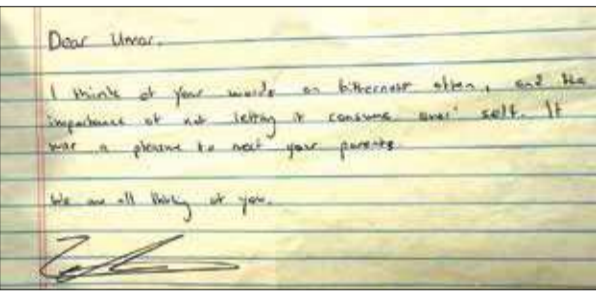 Dear Umar.
I think of your words on bitterness often, and the
importance of not letting it consume ones' self. It
was a pleasure to meet your parents.
We are all thinking of you.